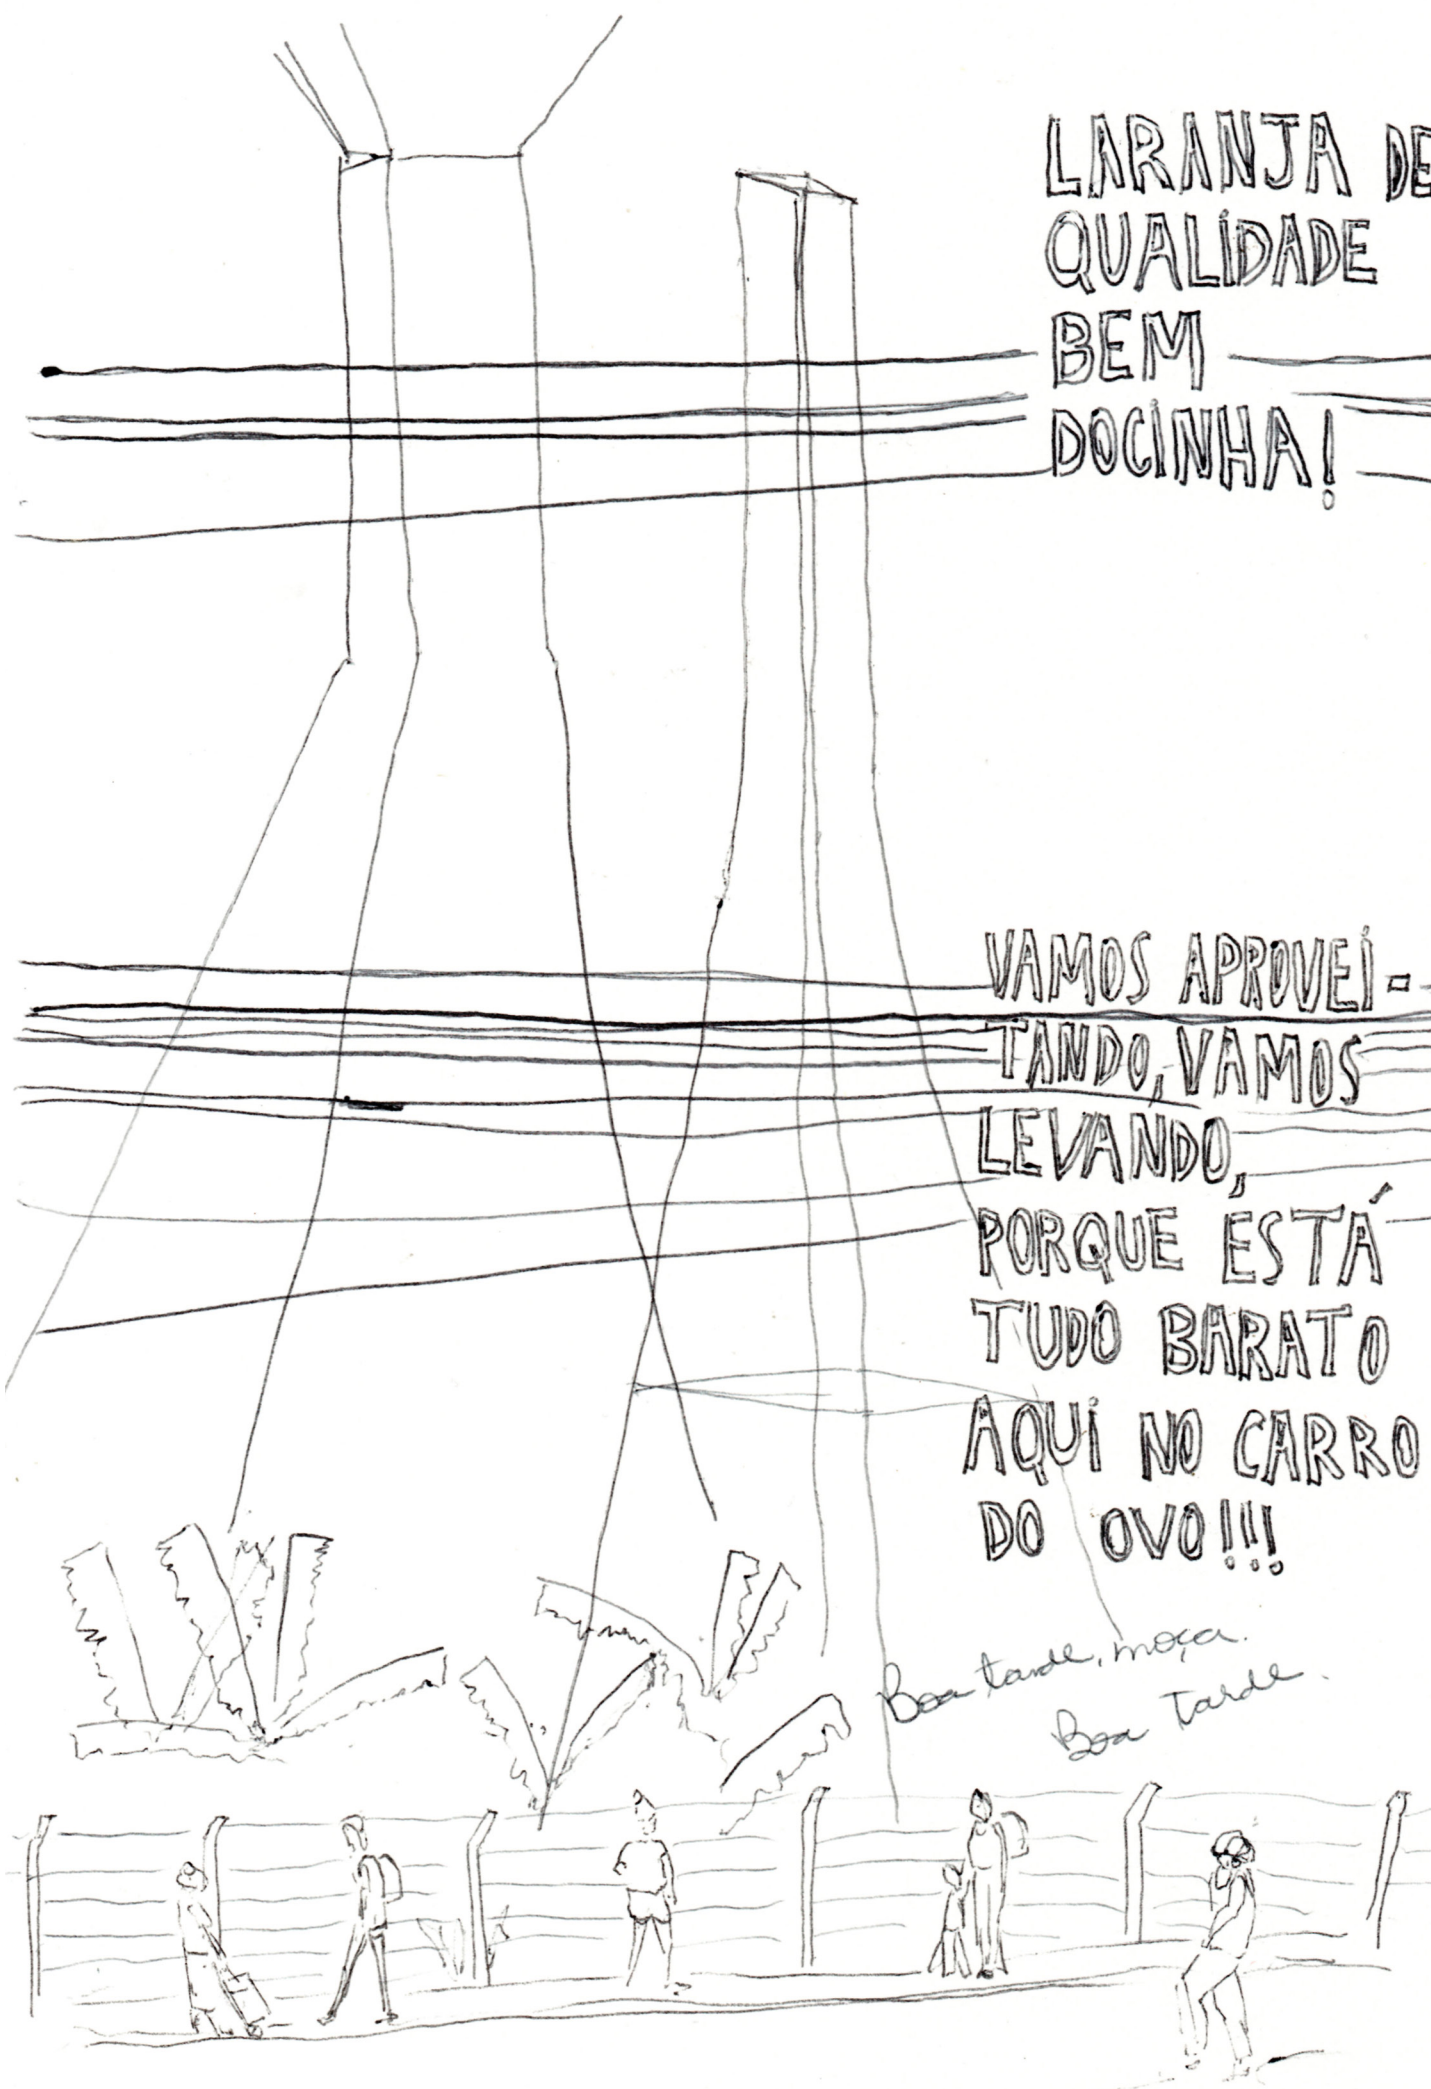 LARANJA DE
QUALIDADE
BEM
DOCINHA!
VAMOS APROVEI-
TANDO, VAMOS
LEVANDO,
PORQUE ESTÁ
TUDO BARATO
AQUI NO CARRO
DO OVO!!!
Boa tarde, moça.
Boa tarde.